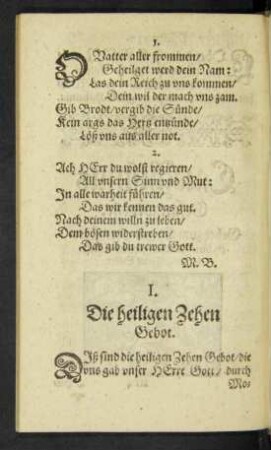 1.
O Vatter aller frommen/
Geheilget werd dein Nam:
Las dein Reich zu vns kommen/
Dein wil der mach vns zam.
Gib Brodt/ vergib die Sünde/
Kein args das Hertz entzünde/
Löß vns aus aller not.
2.
Ach HErr du wolst regieren/
All vnsern Sinn vnd Mut:
In alle warheit führen/
Das wir kennen das gut.
Nach deinem willn zu leben/
Dem bösen widerstreben/
Das gib du trewer Gott.
M. B.
I.
Die heiligen Zehen
Gebot.
DIß sind die heiligen Zehen Gebot/ die
vns gab vnser HErre Gott/ durch
Mo-